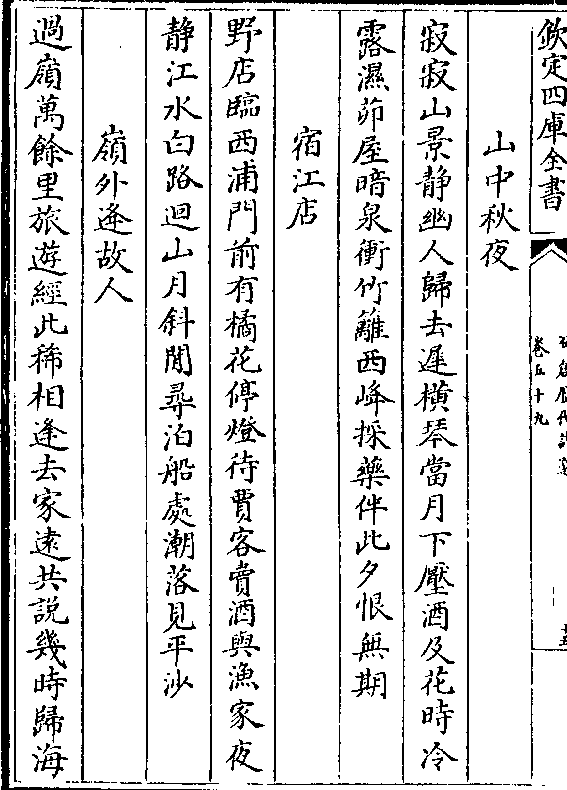 欽定四庫全書
卷五十九
山中秋夜
寂寂山景静幽人歸去遲横琴當月下壓酒及花時冷
露濕茆屋暗泉衝竹籬西峰採藥伴此夕恨無期
宿江店
野店臨西浦門前有橘花停燈待賈客賣酒與漁家夜
静江水白路迴山月斜閒尋泊船處潮落見平沙
嶺外逢故人
過嶺萬餘里旅遊經此稀相逢去家遠共説幾時歸海